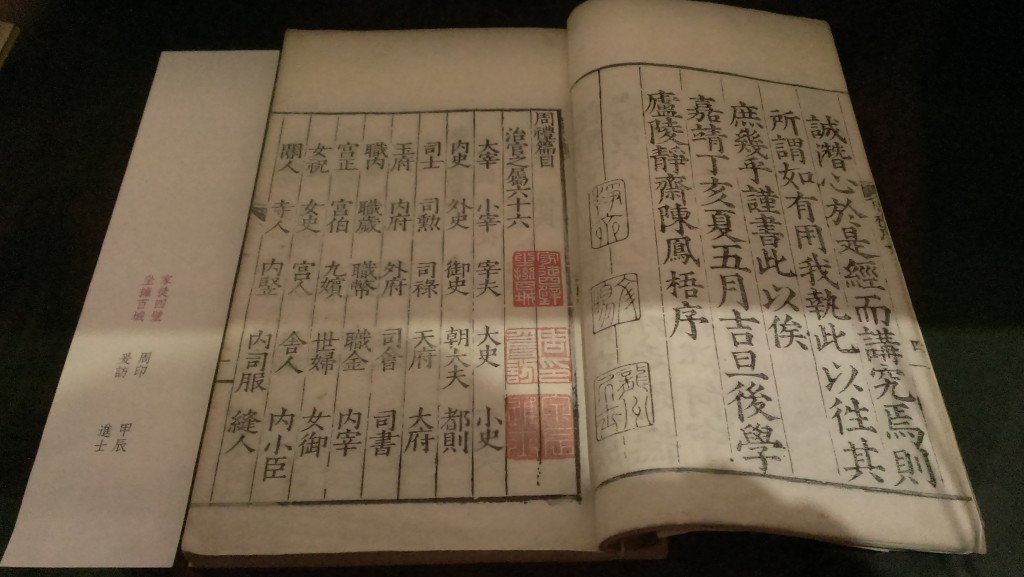 誠潛心於是經而講究焉則
所謂如有用我執此以往其
庶幾乎謹書此以俟
嘉靖丁亥夏五月吉旦後學
廬陵靜齋陳鳳梧序
周禮篇目
治官之屬六十六
大宰 小宰 宰夫 大史 小史
内史 外史 御史 朝大夫 都則
司士 司勲 司祿 天府 大府
玉府 内府 外府 司會 司書
職内 職歲 職幣 職金 内宰
宮正 宮伯 九嬪 世婦 女御
女祝 女史 宮人 舍人 内小臣
閽人 寺人 内竪 内司服 縫人
家徒四壁
坐擁百城
周印
爰訪
甲辰
進士